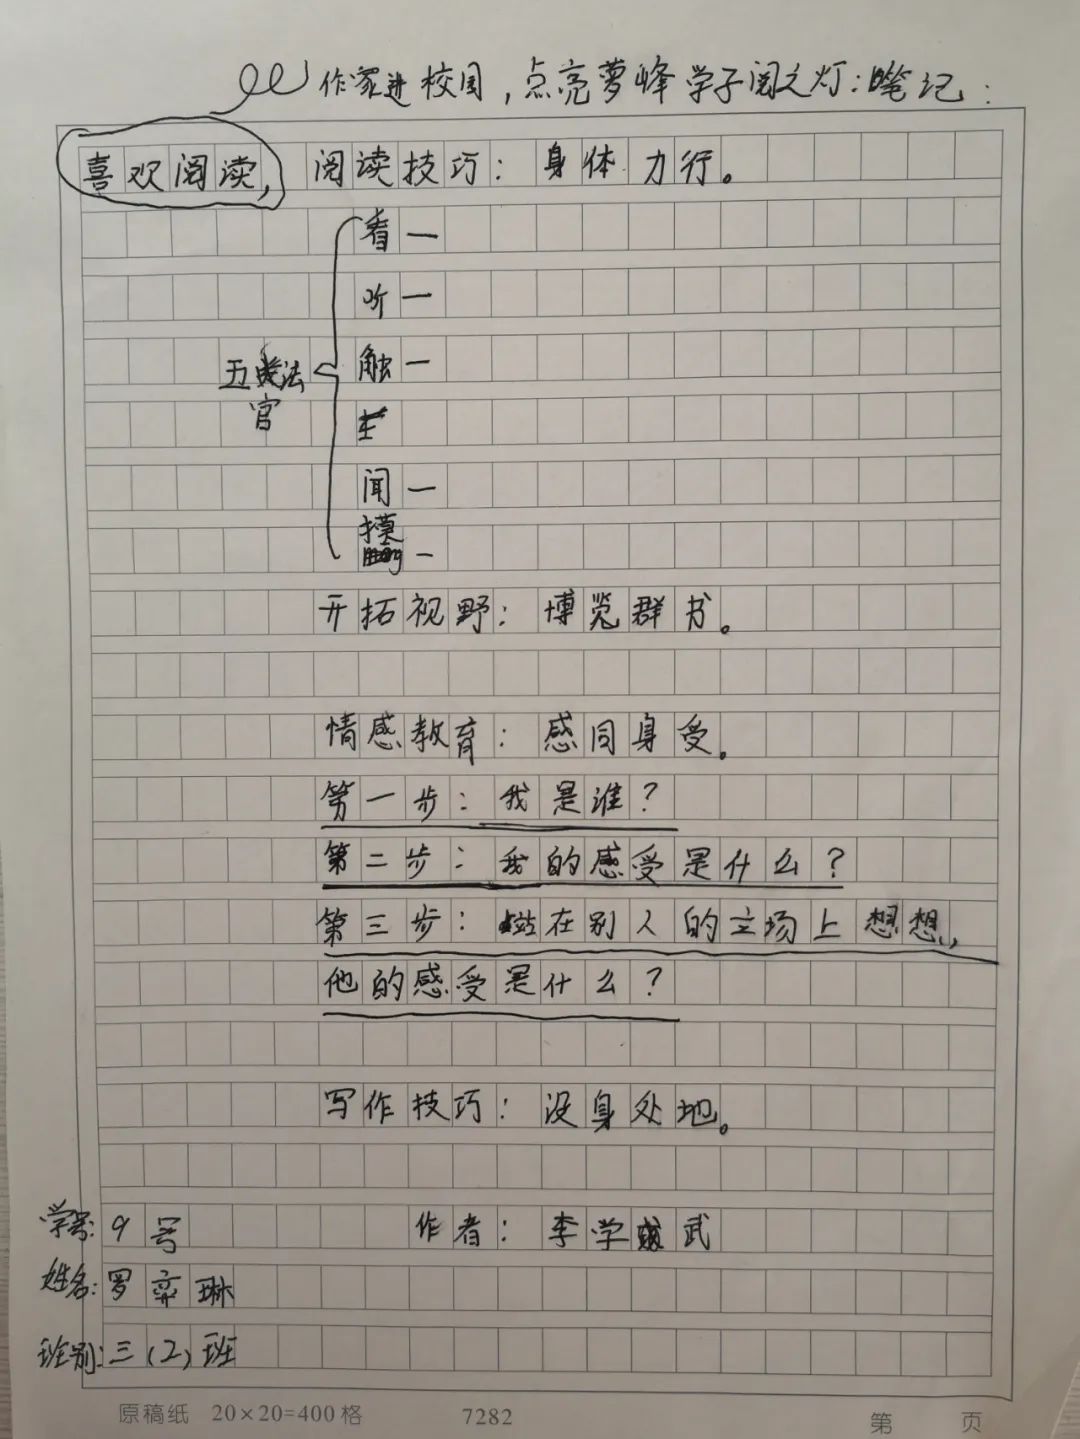 作家进校园，点亮萝峰学子阅之灯：笔记：
喜欢阅读，阅读技巧：身体力行。
看一
听一
触一
五官法
闻一
摸一
开拓视野：博览群书。
情感教育：感同身受。
第一步：我是谁？
第二步：我的感受是什么？
第三步：站在别人的立场上想想，
他的感受是什么？
写作技巧：设身处地。
学号：9号 作者：李学武
姓名：罗弈琳
班别：三（2）班
原稿纸 20×20=400格 7282 第 页